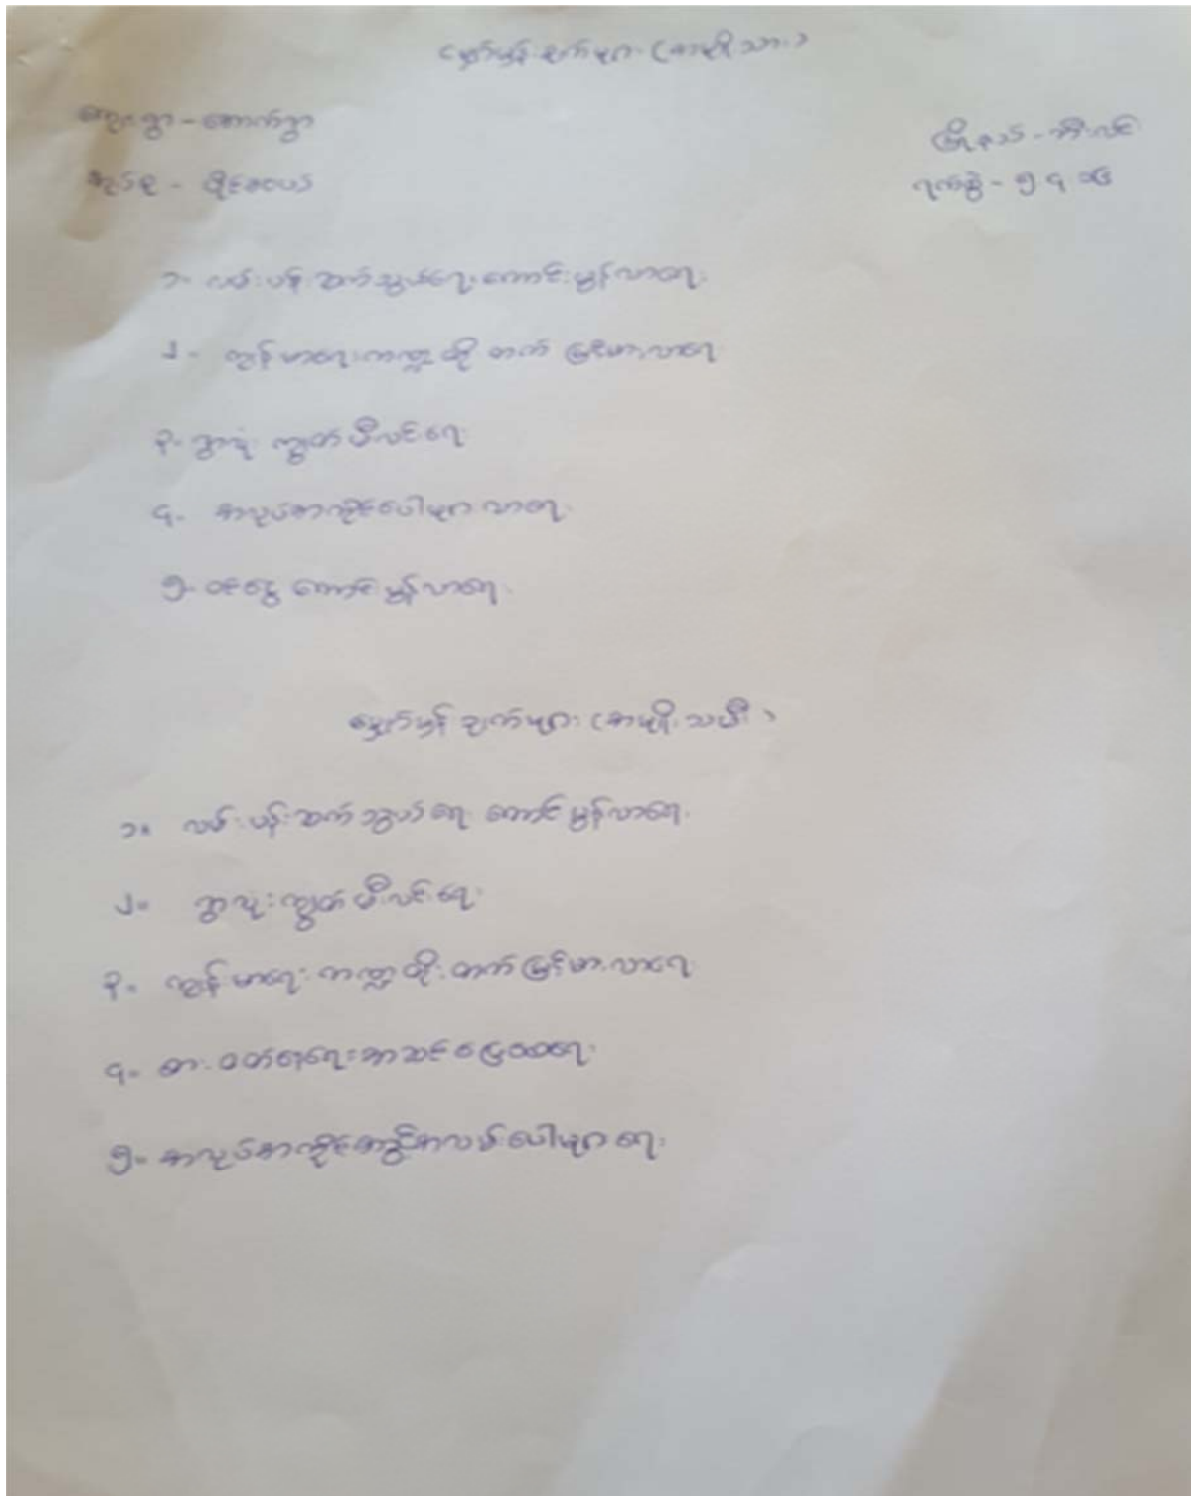 မျှော်မှန်းချက်များ (အမျိုးသား)
ကျေးရွာ - အောက်ရွာ
မြို့နယ် - ဘီးလင်း
အုပ်စု -
ရက်စွဲ - ၅.၄.၁၆
၁- လမ်းပန်းဆက်သွယ်ရေးကောင်းမွန်လာရေး
၂- ကျန်းမာရေးကဏ္ဍတိုးတက်မြင့်မားလာရေး
၃- ရွာလုံးကျွတ်မီးလင်းရေး
၄- အလုပ်အကိုင်ပေါများလာရေး
၅- ဝင်ငွေကောင်းမွန်လာရေး
မျှော်မှန်းချက်များ (အမျိုးသမီး)
၁။ လမ်းပန်းဆက်သွယ်ရေးကောင်းမွန်လာရေး
၂။ ရွာလုံးကျွတ်မီးလင်းရေး
၃။ ကျန်းမာရေးကဏ္ဍတိုးတက်မြင့်မားလာရေး
၄။ စားဝတ်နေရေးအဆင်ပြေစေရေး
၅။ အလုပ်အကိုင်အခွင့်အလမ်းပေါများရေး